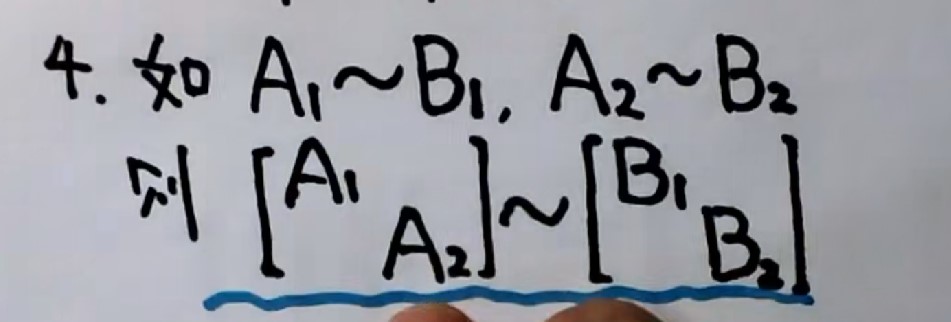 4. 如 A₁~B₁, A₂~B₂
则 [A₁ A₂] ~ [B₁ B₂]